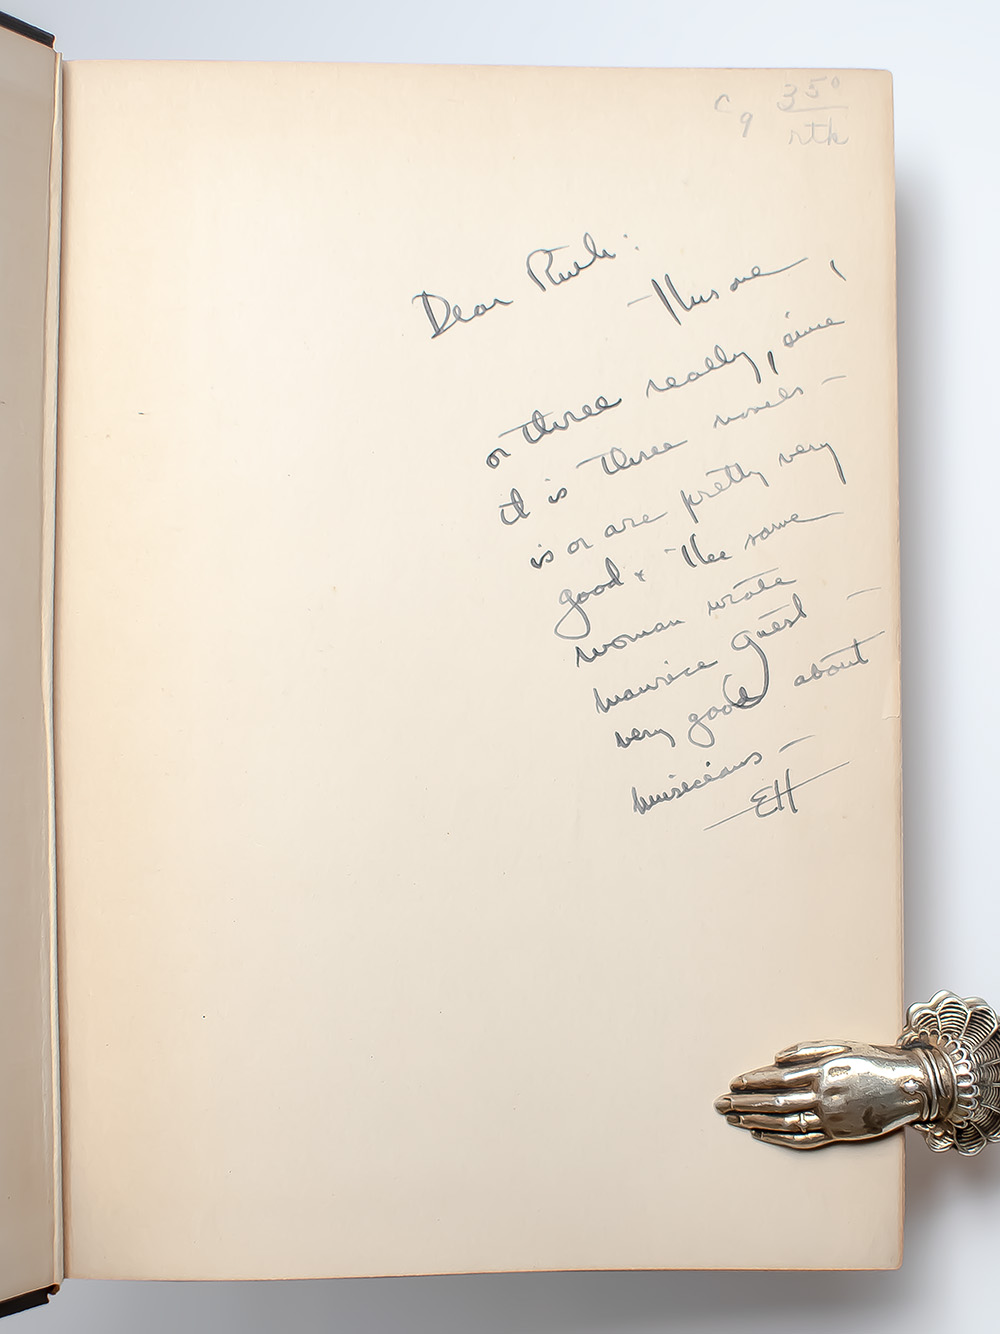 c 9 35⁰
rtk
Dear Ruth:
This one,
or three really, since
it is three novels –
is or are pretty very
good. The same
woman wrote
Maurice Guest –
very good about
musicians –
EH